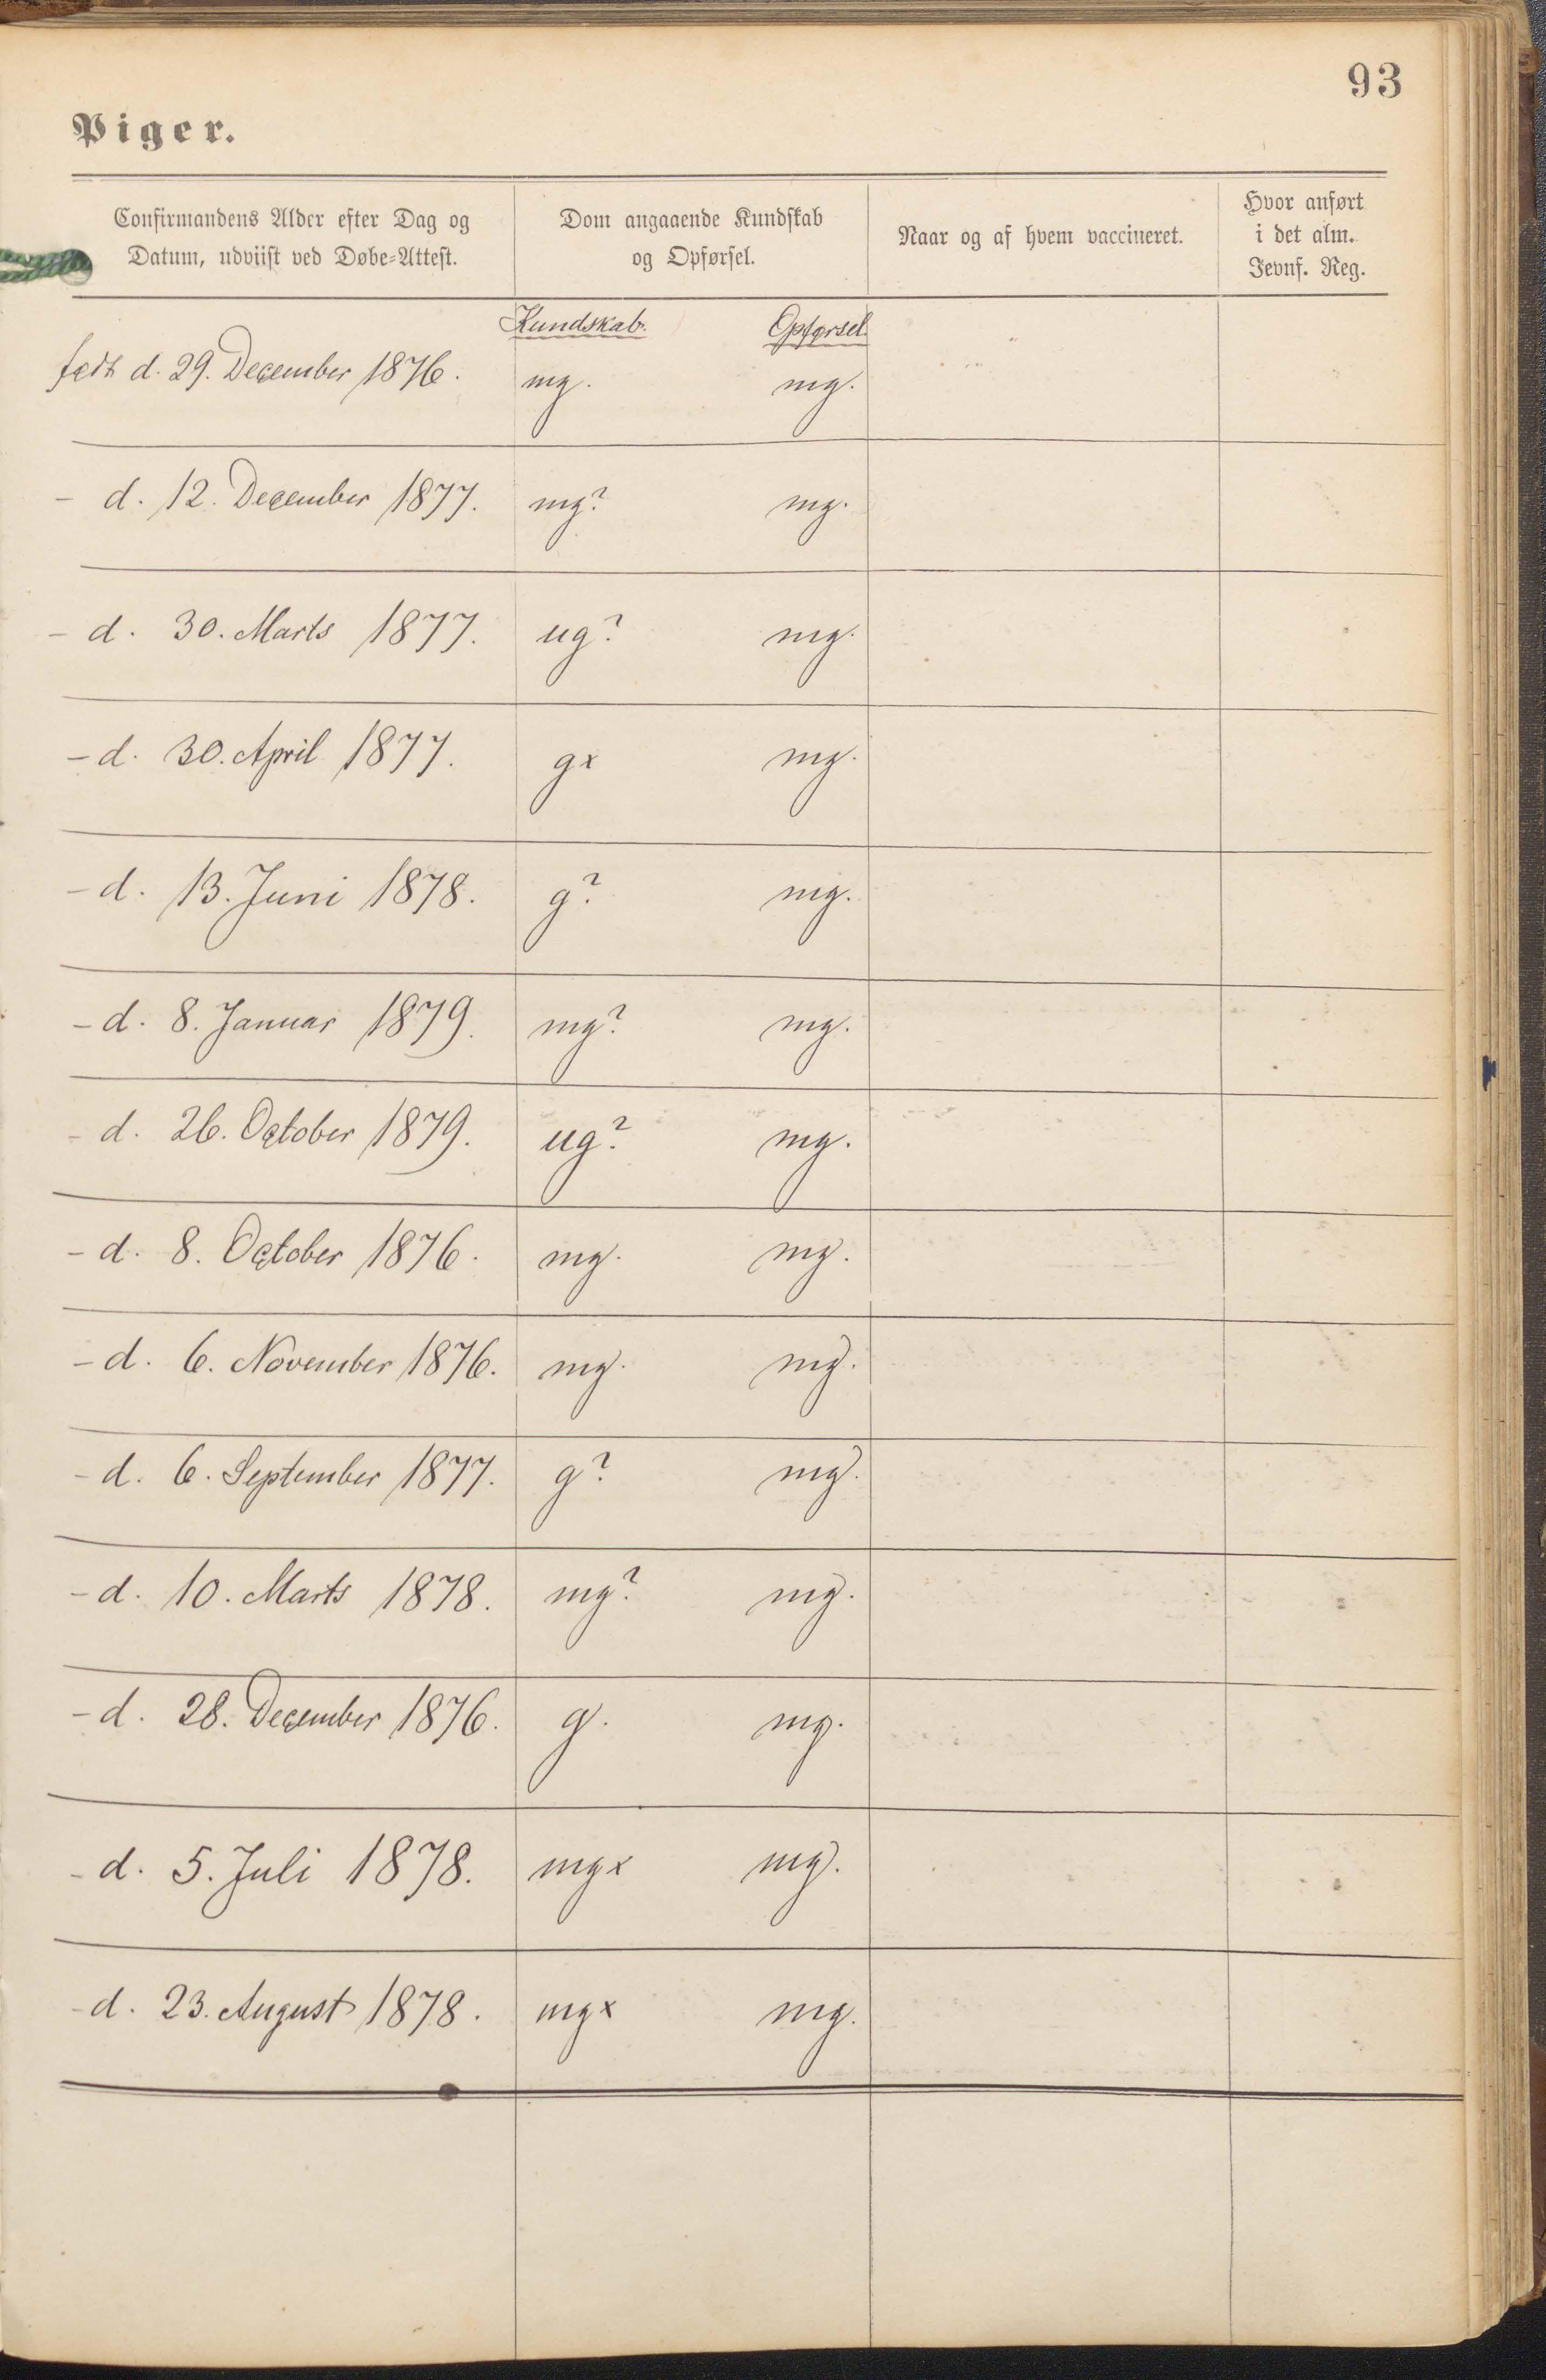 93
Piger.
Confirmandens Alder efter Dag og
Datum, udviist ved Døbe-Attest.
Dom angaaende Kundskab
og Opførsel.
Naar og af hvem vaccineret.
Hvor anført
i det alm.
Jevnf. Reg.
Kundskab. Opførsel.
født d. 29. December 1876. mg. mg.
- d. 12. December 1877. mg? mg.
- d. 30. Marts 1877. ug? mg.
- d. 30. April 1877. gx mg.
- d. 13. Juni 1878. g? mg.
- d. 8. Januar 1879. mg? mg.
- d. 26. October 1879. ug? mg.
- d. 8. October 1876. mg. mg.
- d. 6. November 1876. mg. mg.
- d. 6. September 1877. g? mg.
- d. 10. Marts 1878. mg? mg.
- d. 28. December 1876. g. mg.
- d. 5. Juli 1878. mgx mg.
- d. 23. August 1878. mgx mg.